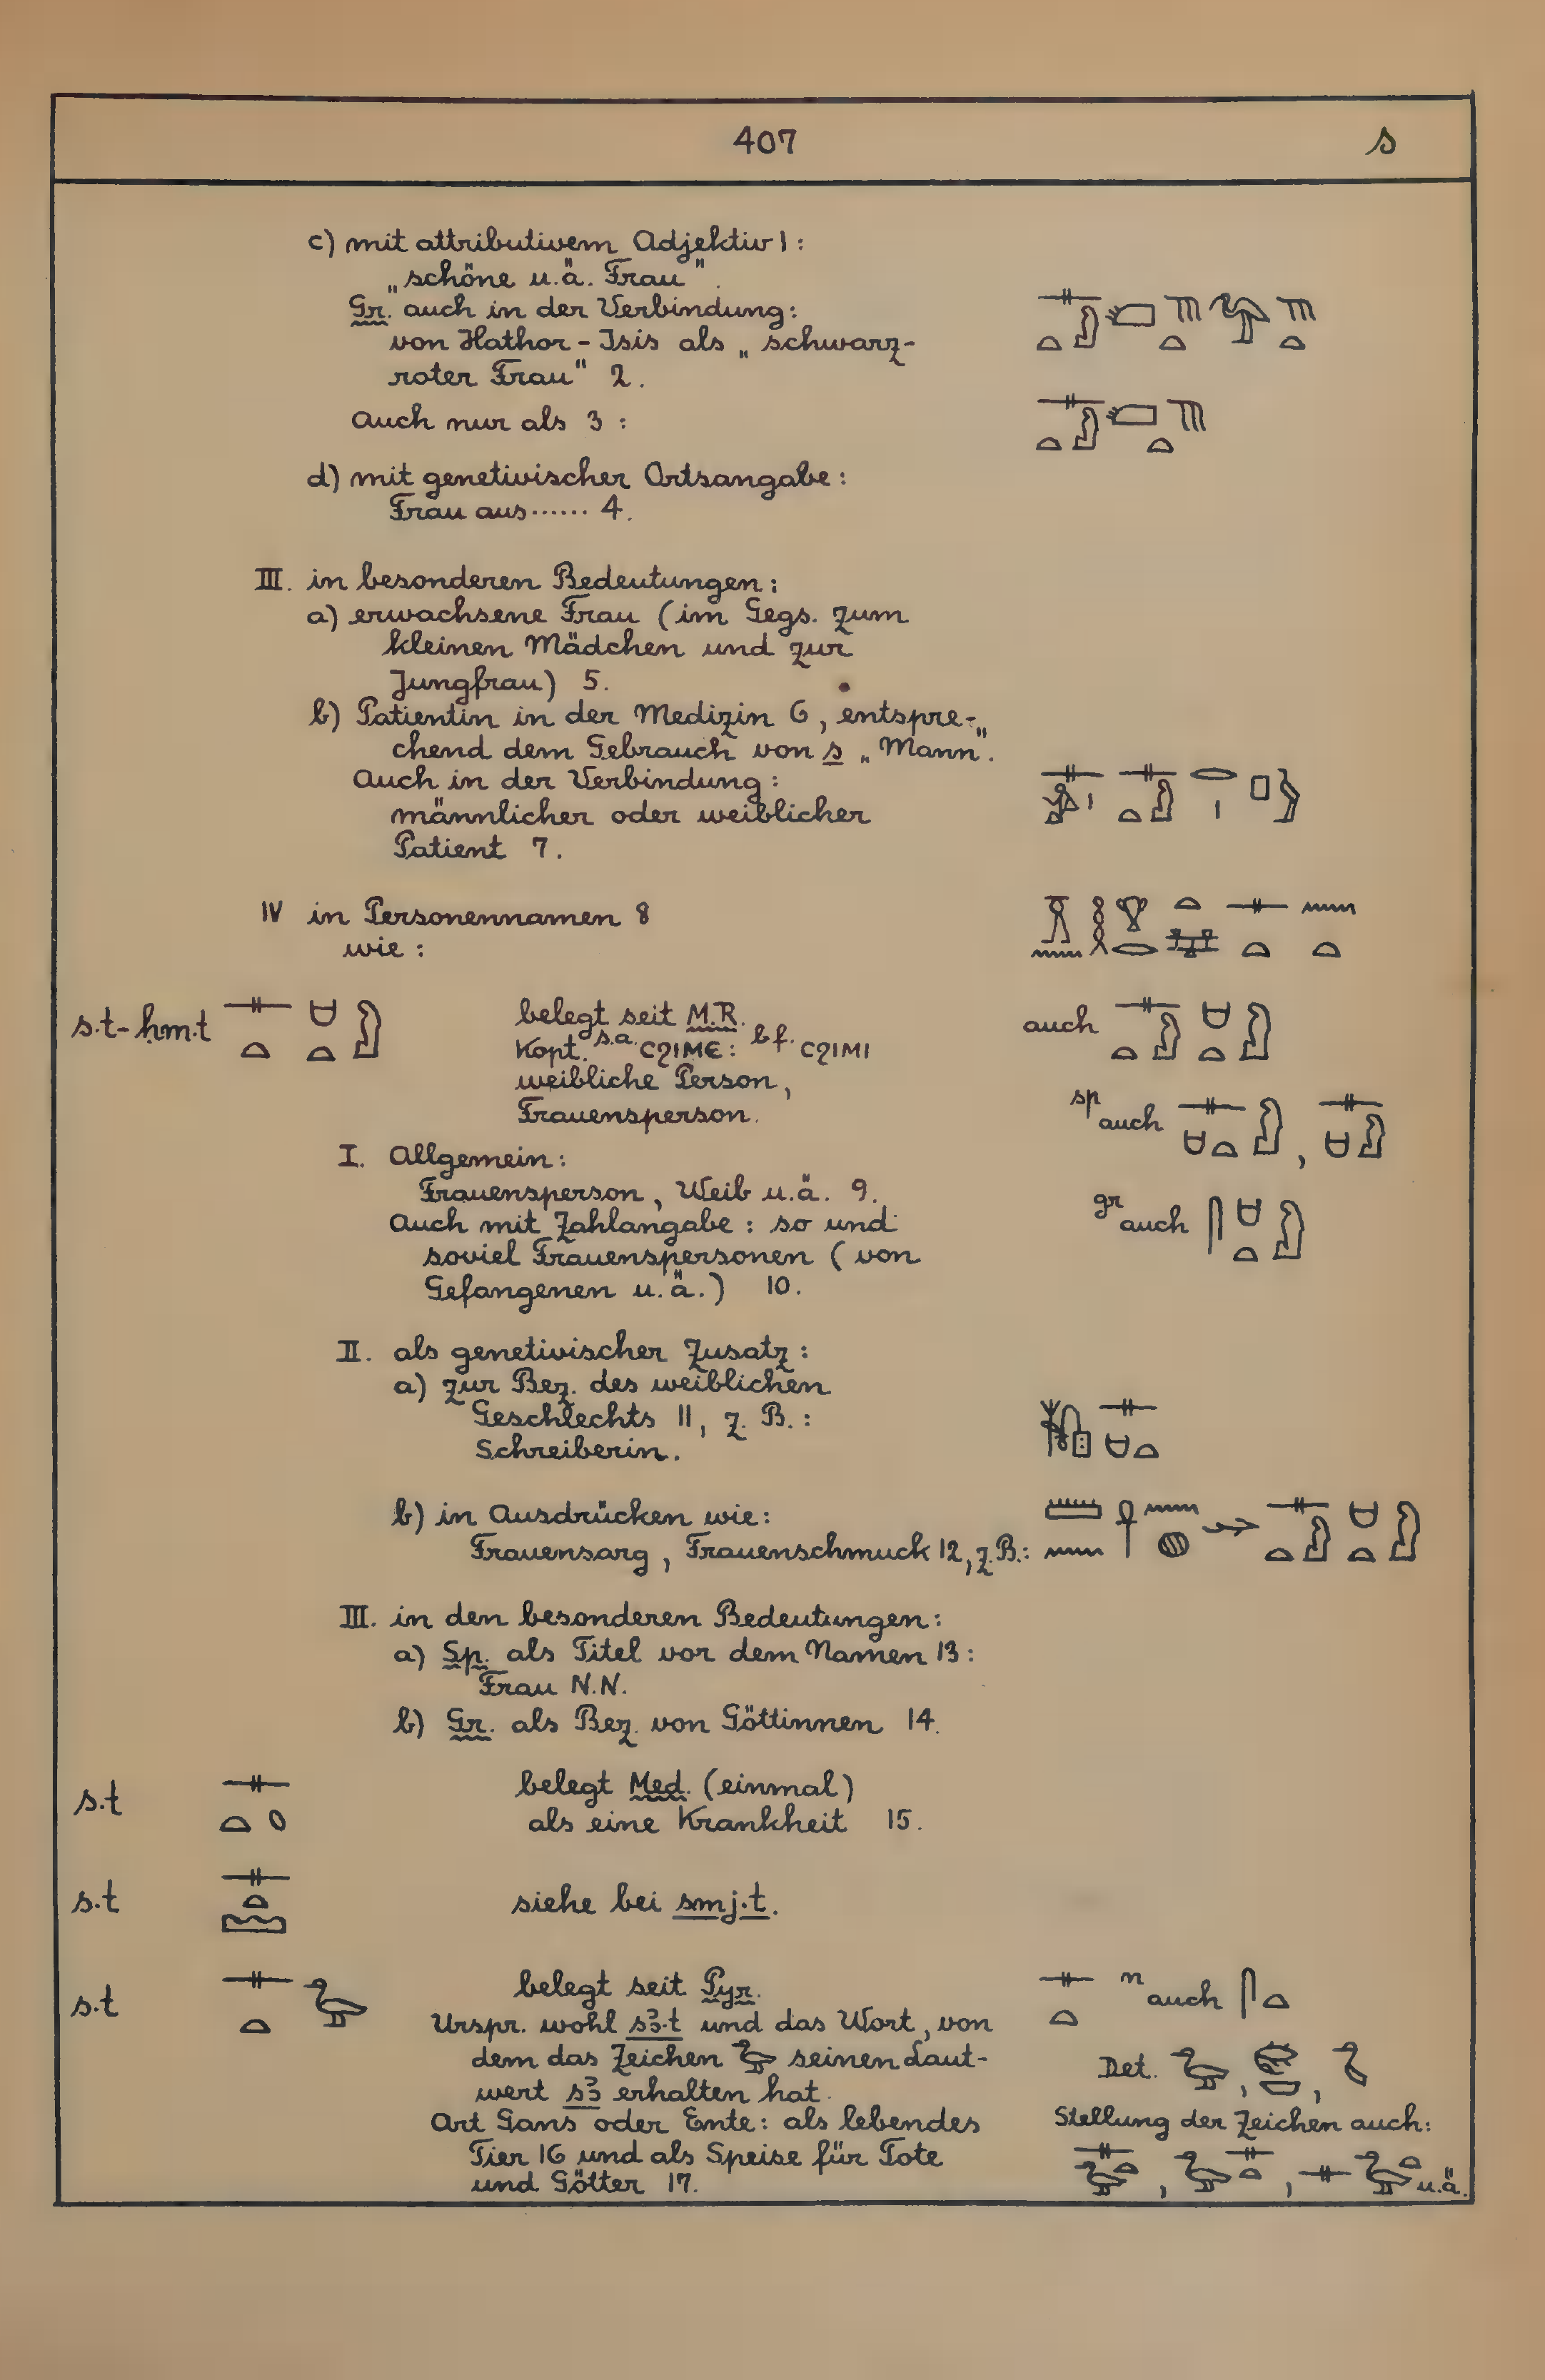 407 s
c) mit attributivem Adjektiv 1:
„schöne u.ä. Frau".
Gr. auch in der Verbindung:
von Hathor-Isis als „schwarz-
roter Frau" 2.
Auch nur als 3:
d) mit genetivischer Ortsangabe:
Frau aus...... 4.
III. in besonderen Bedeutungen:
a) erwachsene Frau (im Gegs. zum
kleinen Mädchen und zur
Jungfrau) 5.
b) Patientin in der Medizin 6, entspre-
chend dem Gebrauch von s „Mann".
Auch in der Verbindung:
männlicher oder weiblicher
Patient 7.
IV in Personennamen 8
wie:
s.t-ḥm.t belegt seit M.R. auch
Kopt. s.a. ⲤϨⲒⲘⲈ: b f. ⲤϨⲒⲘⲒ
weibliche Person,
Frauensperson. sp auch ,
I. Allgemein:
Frauensperson, Weib u.ä. 9.
Auch mit Zahlangabe: so und gr auch
soviel Frauenspersonen (von
Gefangenen u.ä.) 10.
II. als genetivischer Zusatz:
a) zur Bez. des weiblichen
Geschlechts 11, z. B.:
Schreiberin.
b) in Ausdrücken wie:
Frauensarg, Frauenschmuck 12, z.B.:
III. in den besonderen Bedeutungen:
a) Sp. als Titel vor dem Namen 13:
Frau N.N.
b) Gr. als Bez. von Göttinnen 14.
s.t belegt Med. (einmal)
als eine Krankheit 15.
s.t siehe bei smj.t.
s.t belegt seit Pyr. n auch
Urspr. wohl sꜣ.t und das Wort, von
dem das Zeichen 𓅭 seinen Laut- Det. , ,
wert sꜣ erhalten hat.
Art Gans oder Ente: als lebendes Stellung der Zeichen auch:
Tier 16 und als Speise für Tote
und Götter 17. , , u.ä.